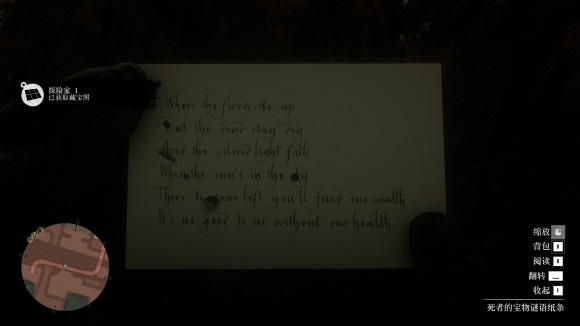 探险家 1
已获取藏宝图
Where the floods rise up
But the dead stay dry
And the colored light falls
When the sun's in the sky
There to your left you'll find our wealth
It's no good to us without our health
缩放
背包
阅读
翻转
收起
死者的宝物谜语纸条